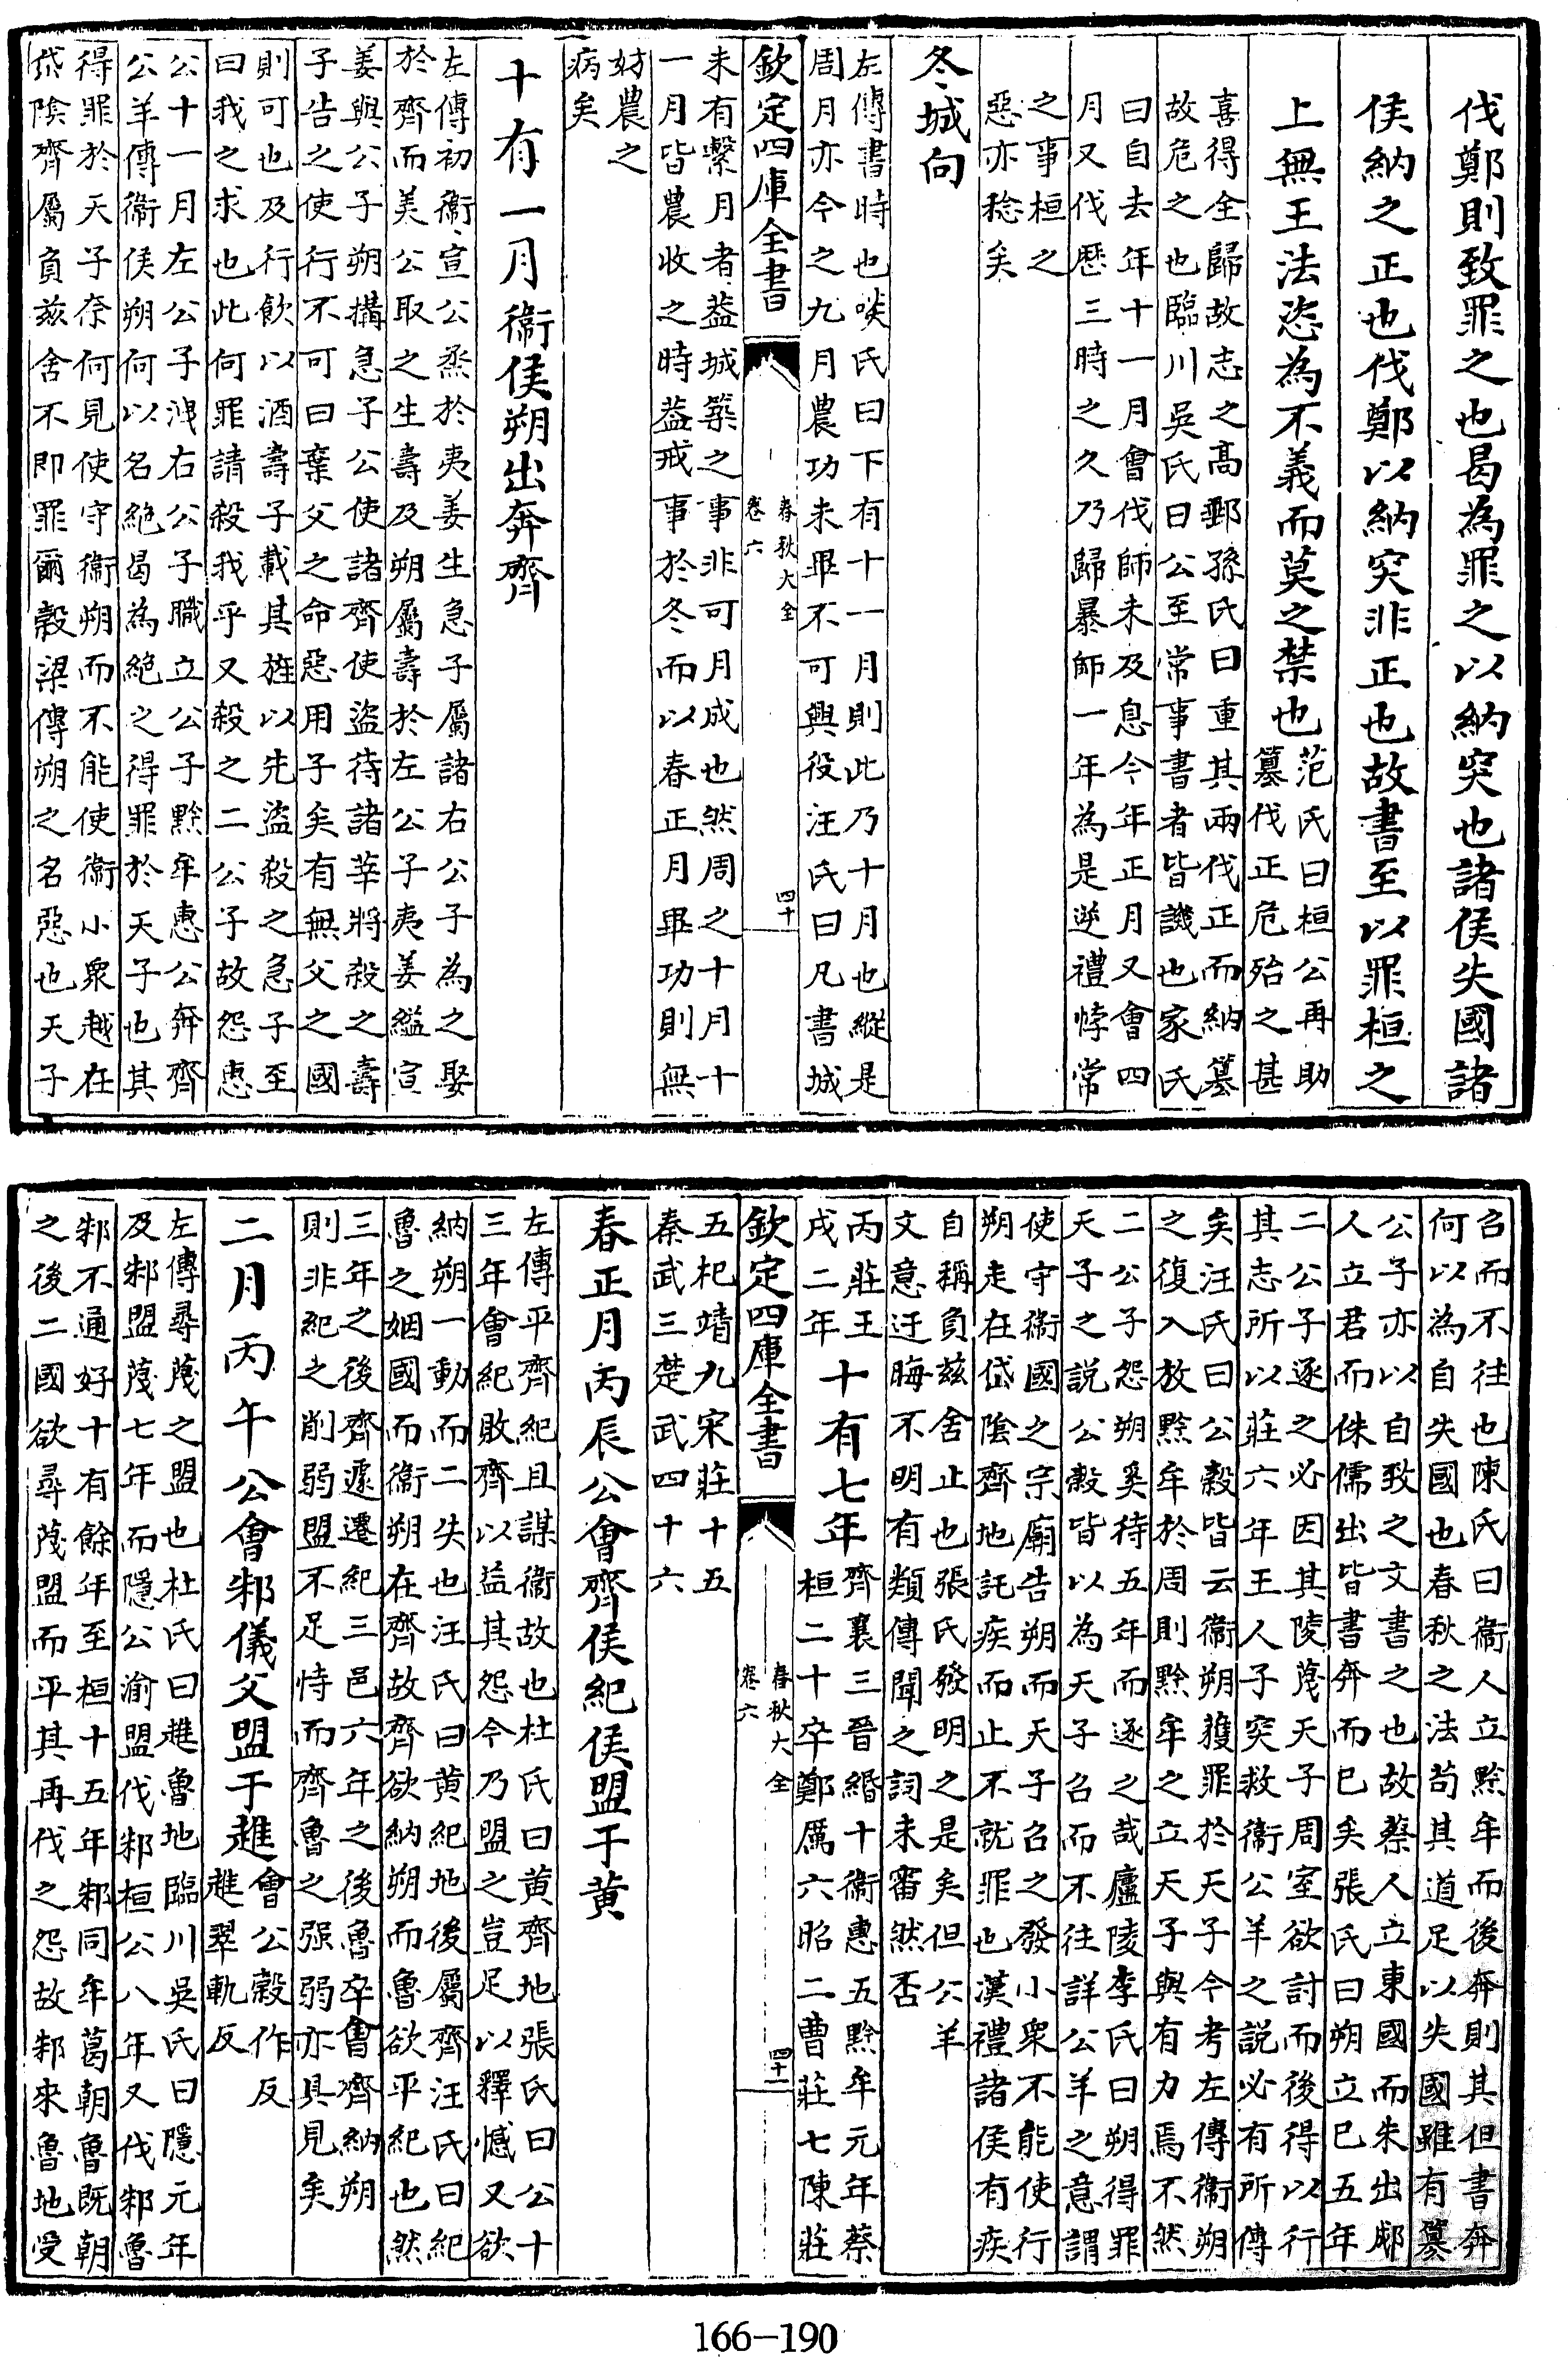 伐鄭則致罪之也曷為罪之以納突也諸侯失國諸
侯納之正也伐鄭以納突非正也故書至以罪桓之
上無王法恣為不義而莫之禁也
范氏曰桓公再助
篡伐正危殆之甚
喜得全歸故志之髙郵孫氏曰重其兩伐正而納篡
故危之也臨川吳氏曰公至常事書者皆譏也家氏
曰自去年十一月會伐師未及息今年正月又會四
月又伐歷三時之久乃歸暴師一年為是逆禮悖常
之事桓之
惡亦稔矣
冬城向
左傳書時也啖氏曰下有十一月則此乃十月也縱是
周月亦今之九月農功未畢不可興役汪氏曰凡書城
欽定四庫全書
春秋大全
卷六
四十
未有繫月者葢城築之事非可月成也然周之十月十
一月皆農收之時葢戒事於冬而以春正月畢功則無
妨農之
病矣
十有一月衞侯朔出奔齊
左傳初衞宣公烝於夷姜生急子屬諸右公子為之娶
於齊而美公取之生壽及朔屬壽於左公子夷姜縊宣
姜與公子朔搆急子公使諸齊使盜待諸莘將殺之壽
子告之使行不可曰棄父之命惡用子矣有無父之國
則可也及行飲以酒壽子載其旌以先盜殺之急子至
曰我之求也此何罪請殺我乎又殺之二公子故怨惠
公十一月左公子洩右公子職立公子黔牟惠公奔齊
公羊傳衞侯朔何以名絶曷為絶之得罪於天子也其
得罪於天子奈何見使守衞朔而不能使衞小衆越在
岱隂齊屬負兹舍不即罪爾糓梁傳朔之名惡也天子
召而不往也陳氏曰衞人立黔牟而後奔則其但書奔
何以為自失國也春秋之法苟其道足以失國雖有篡
公子亦以自致之文書之也故蔡人立東國而朱出郕
人立君而侏儒出皆書奔而已矣張氏曰朔立已五年
二公子逐之必因其陵蔑天子周室欲討而後得以行
其志所以莊六年王人子突救衞公羊之説必有所傳
矣汪氏曰公糓皆云衞朔獲罪於天子今考左傳衞朔
之復入放黔牟於周則黔牟之立天子與有力焉不然
二公子怨朔奚待五年而逐之哉廬陵李氏曰朔得罪
天子之説公糓皆以為天子召而不往詳公羊之意謂
使守衞國之宗廟告朔而天子召之發小衆不能使行
朔走在岱隂齊地託疾而止不就罪也漢禮諸侯有疾
自稱負兹舍止也張氏發明之是矣但公羊
文意迂晦不明有類傳聞之詞未審然否
丙莊王
戌二年
十有七年
齊襄三晉緡十衞惠五黔牟元年蔡
桓二十卒鄭厲六昭二曹莊七陳莊
欽定四庫全書
春秋大全
卷六
四十一
五杞靖九宋莊十五
秦武三楚武四十六
春正月丙辰公會齊侯紀侯盟于黄
左傳平齊紀且謀衞故也杜氏曰黄齊地張氏曰公十
三年會紀敗齊以益其怨今乃盟之豈足以釋憾又欲
納朔一動而二失也汪氏曰黄紀地後屬齊汪氏曰紀
魯之姻國而衞朔在齊故齊欲納朔而魯欲平紀也然
三年之後齊遽遷紀三邑六年之後魯卒會齊納朔
則非紀之削弱盟不足恃而齊魯之强弱亦具見矣
二月丙午公會邾儀父盟于趡
會公糓作及
趡翠軌反
左傳尋蔑之盟也杜氏曰趡魯地臨川吳氏曰隱元年
及邾盟蔑七年而隱公渝盟伐邾桓公八年又伐邾魯
邾不通好十有餘年至桓十五年邾同牟葛朝魯既朝
之後二國欲尋蔑盟而平其再伐之怨故邾來魯地受
166-190